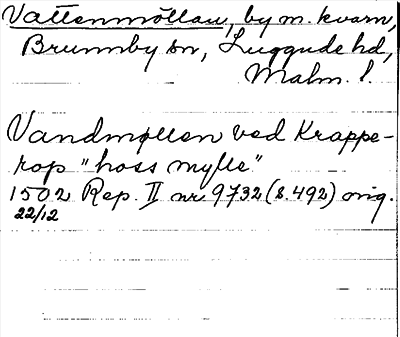 Vattenmöllan, by m. kvarn,
Brunnby sn, Luggude hd,
Malm. l.
Vandmøllen ved Krappe-
rop "hoss mylle"
1502 Rep. II nr 9732 (s. 492) orig.
22/12